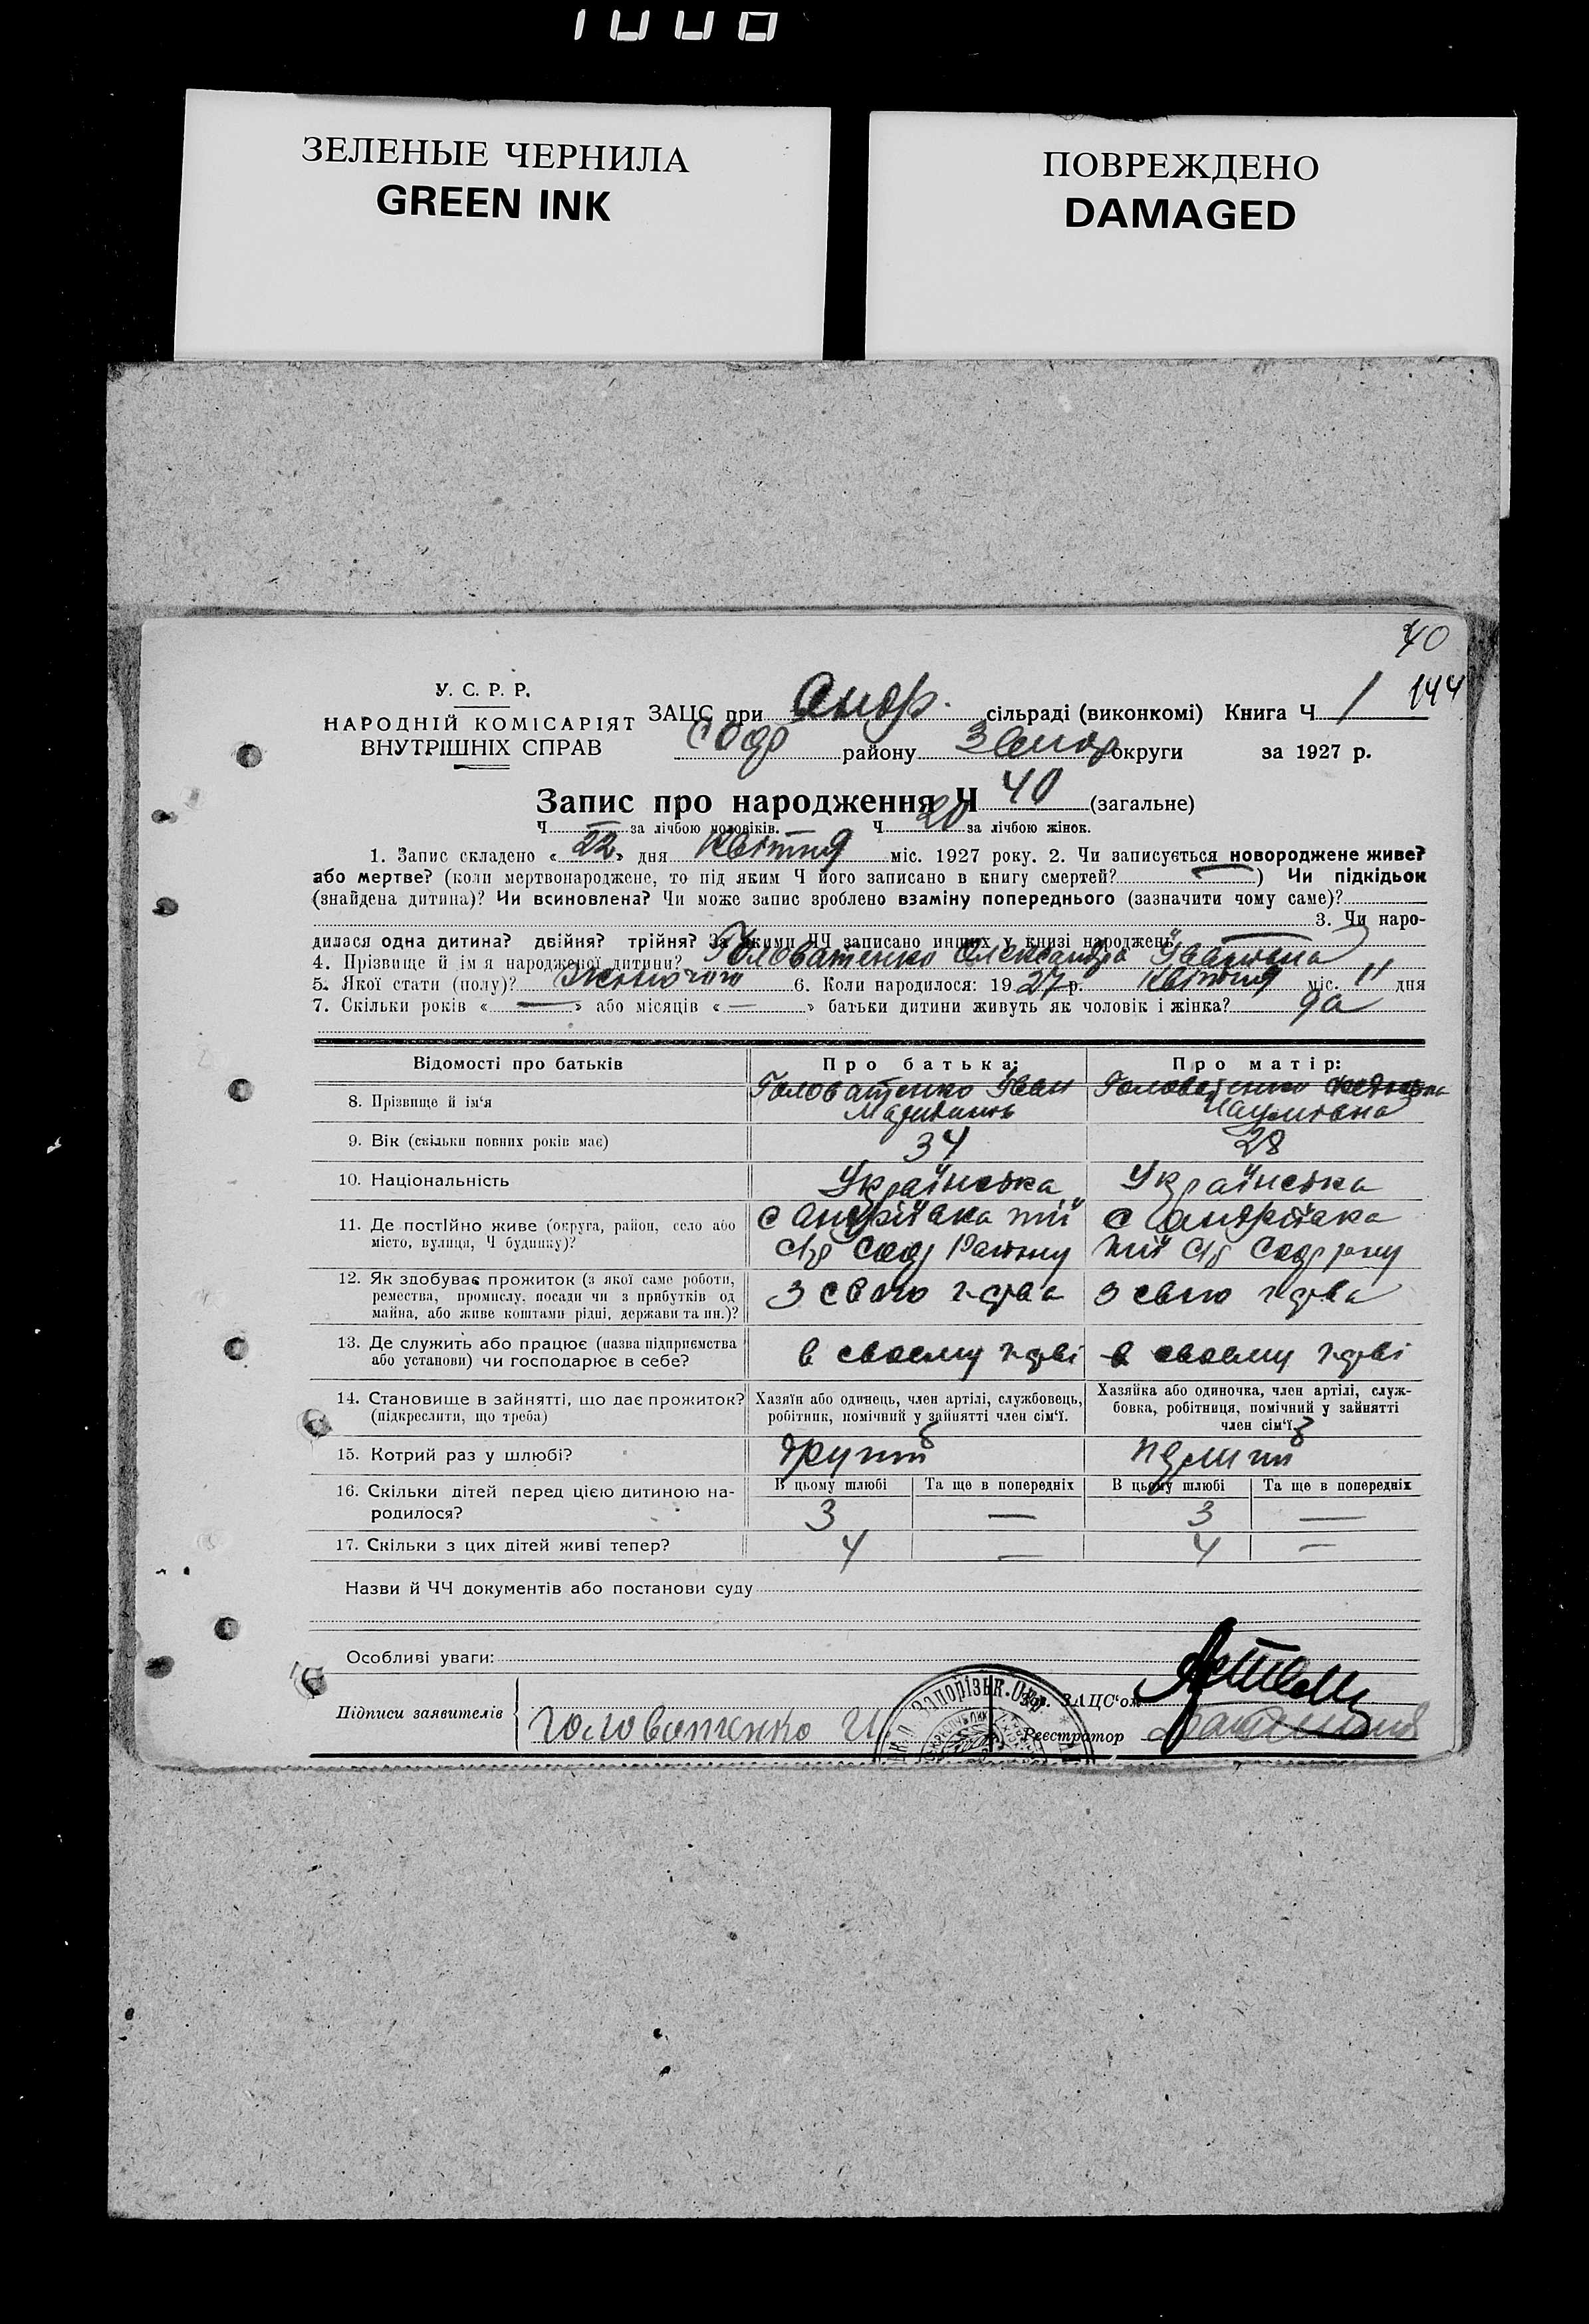 ЗЕЛЕНЫЕ ЧЕРНИЛА
GREEN INK
ПОВРЕЖДЕНО
DAMAGED
40
144
У. С. Р. Р.
НАРОДНІЙ КОМІСАРІЯТ
ВНУТРІШНІХ СПРАВ
ЗАЦС при Андр. сільраді (виконкомі) Книга Ч 1
району округи за 1927 р.
Запис про народження Ч 40 (загальне)
Ч — за лічбою чоловіків. Ч 20 за лічбою жінок.
1. Запис складено « 22 » дня Квітня міс. 1927 року. 2. Чи записується новороджене живе?
або мертве? (коли мертвонароджене, то під яким Ч його записано в книгу смертей? — ) Чи підкідьок
(знайдена дитина)? Чи всиновлена? Чи може запис зроблено взаміну попереднього (зазначити чому саме)?
3. Чи наро-
дилася одна дитина? двійня? трійня? За якими ЧЧ записано инших у книзі народжень
4. Прізвище й ім'я народженої дитини? Головатенко Олександра Іванівна
5. Якої стати (полу)? жіночого 6. Коли народилося: 1927 р. Квітня міс. 11 дня
7. Скільки років « — » або місяців « — » батьки дитини живуть як чоловік і жінка? 9а
Відомості про батьків Про батька: Про матір:
8. Прізвище й ім'я Головатенко Іван Головатенко
Наумівна
9. Вік (скільки повних років має) 34 28
10. Національність Українська Українська
11. Де постійно живе (округа, район, село або місто, вулиця, Ч будинку)? с Андріївка тії с Андріївка
району
12. Як здобуває прожиток (з якої саме роботи, ремества, промислу, посади чи з прибутків од майна, або живе коштами рідні, держави та ин.)? з свого г-дрва з свого г-дрва
13. Де служить або працює (назва підприємства або установи) чи господарює в себе? в своему г-дрві в своему г-дрві
14. Становище в зайнятті, що дає прожиток? (підкреслити, що треба) Хазяїн або одинець, член артілі, службовець, робітник, помічний у зайнятті член сім'ї. Хазяйка або одиночка, член артілі, служ-бовка, робітниця, помічний у зайнятті член сім'ї
15. Котрий раз у шлюбі? другий перший
16. Скільки дітей перед цією дитиною на-родилося? В цьому шлюбі Та ще в попередніх В цьому шлюбі Та ще в попередніх
3 — 3 —
17. Скільки з цих дітей живі тепер? 4 — 4 —
Назви й ЧЧ документів або постанови суду
Особливі уваги:
Підписи заявителів Головатенко И.
Зав. ЗАЦС'ом
Реєстратор
Запорізьк. Окр.